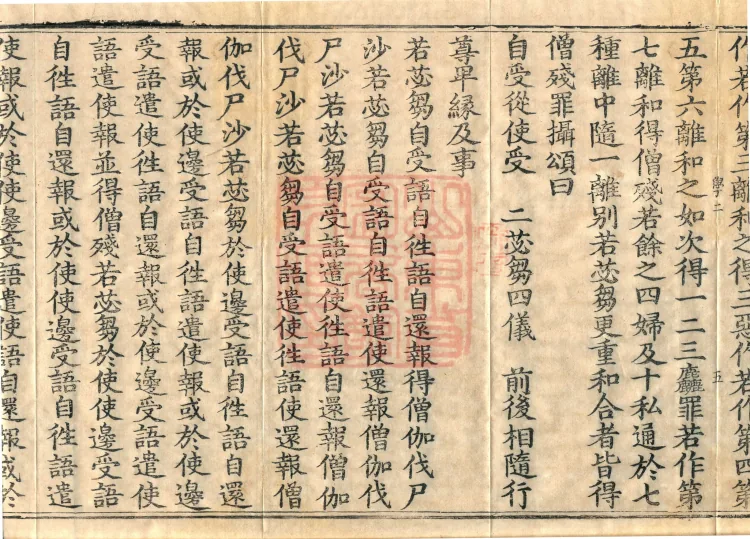 作若作第三離和之得三惡作若作第四第
學二 五
五第六離和之如次得一二三麤罪若作第
七離和得僧殘若餘之四婦及十私通於七
種離中隨一離別若苾芻更重和合者皆得
僧殘罪攝頌曰
自受從使受 二苾芻四儀 前後相隨行
尊卑緣及事
若苾芻自受語自徃語自還報得僧伽伐尸
沙若苾芻自受語自徃語遣使還報僧伽伐
尸沙若苾芻自受語遣使語自還報僧伽
伐尸沙若苾芻自受語遣使徃語使還報僧
伽伐尸沙若苾芻於使邊受語自徃語自還
報或於使邊受語自徃語遣使報或於使邊
受語遣使徃語自還報或於使邊受語遣使
語遣使報並得僧殘若苾芻於使使邊受語
自徃語自還報或於使使邊受語自徃語遣
使報或於使使邊受語遣使語自還報或於